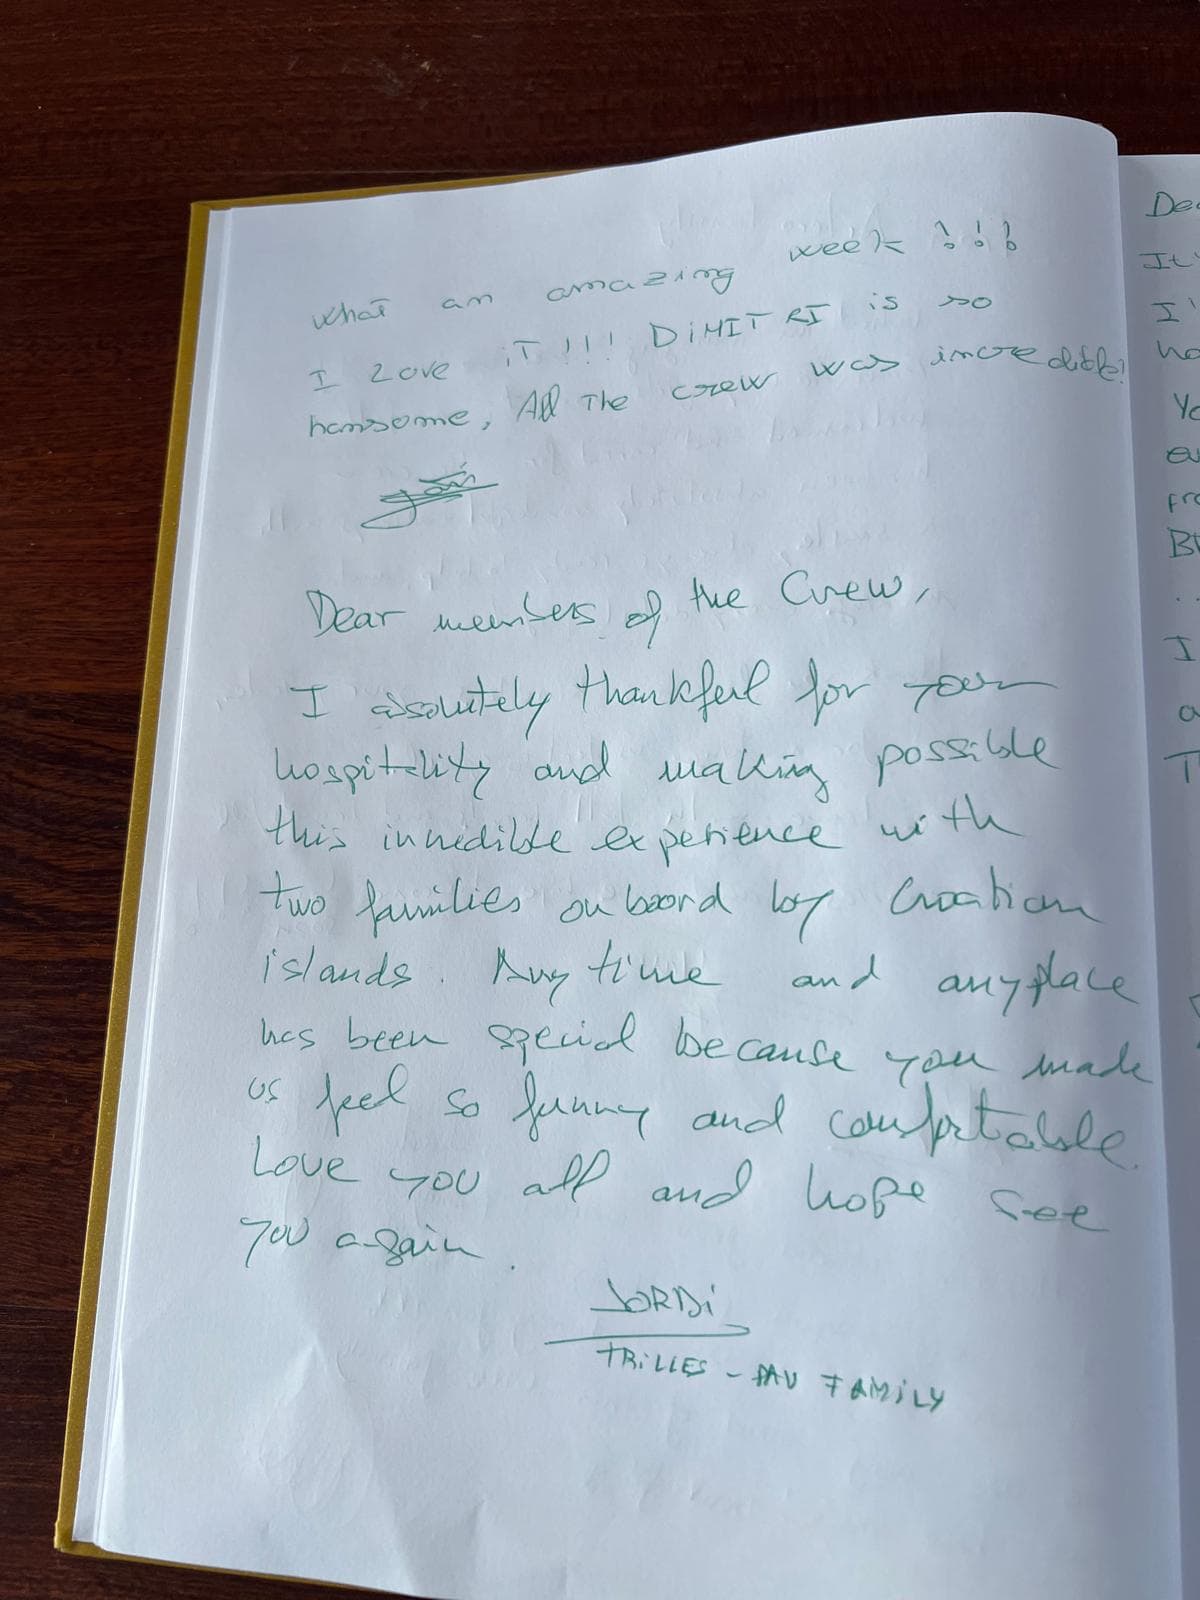 What an amazing week !!!
I Love iT!!! DiMITRI is so
hansome, All The crew was incredible!
Dear members of the Crew,
I absolutely thankful for your
hospitality and making possible
this incredible experience with
two families on board by Croatian
islands. Any time and anyplace
has been special because you made
us feel so funny and comfortable.
Love you all and hope see
you again.
JORDi
TRiLLES - PAU FAMiLY
Dea
It'
I'
ha
Yo
fro
I
a
T